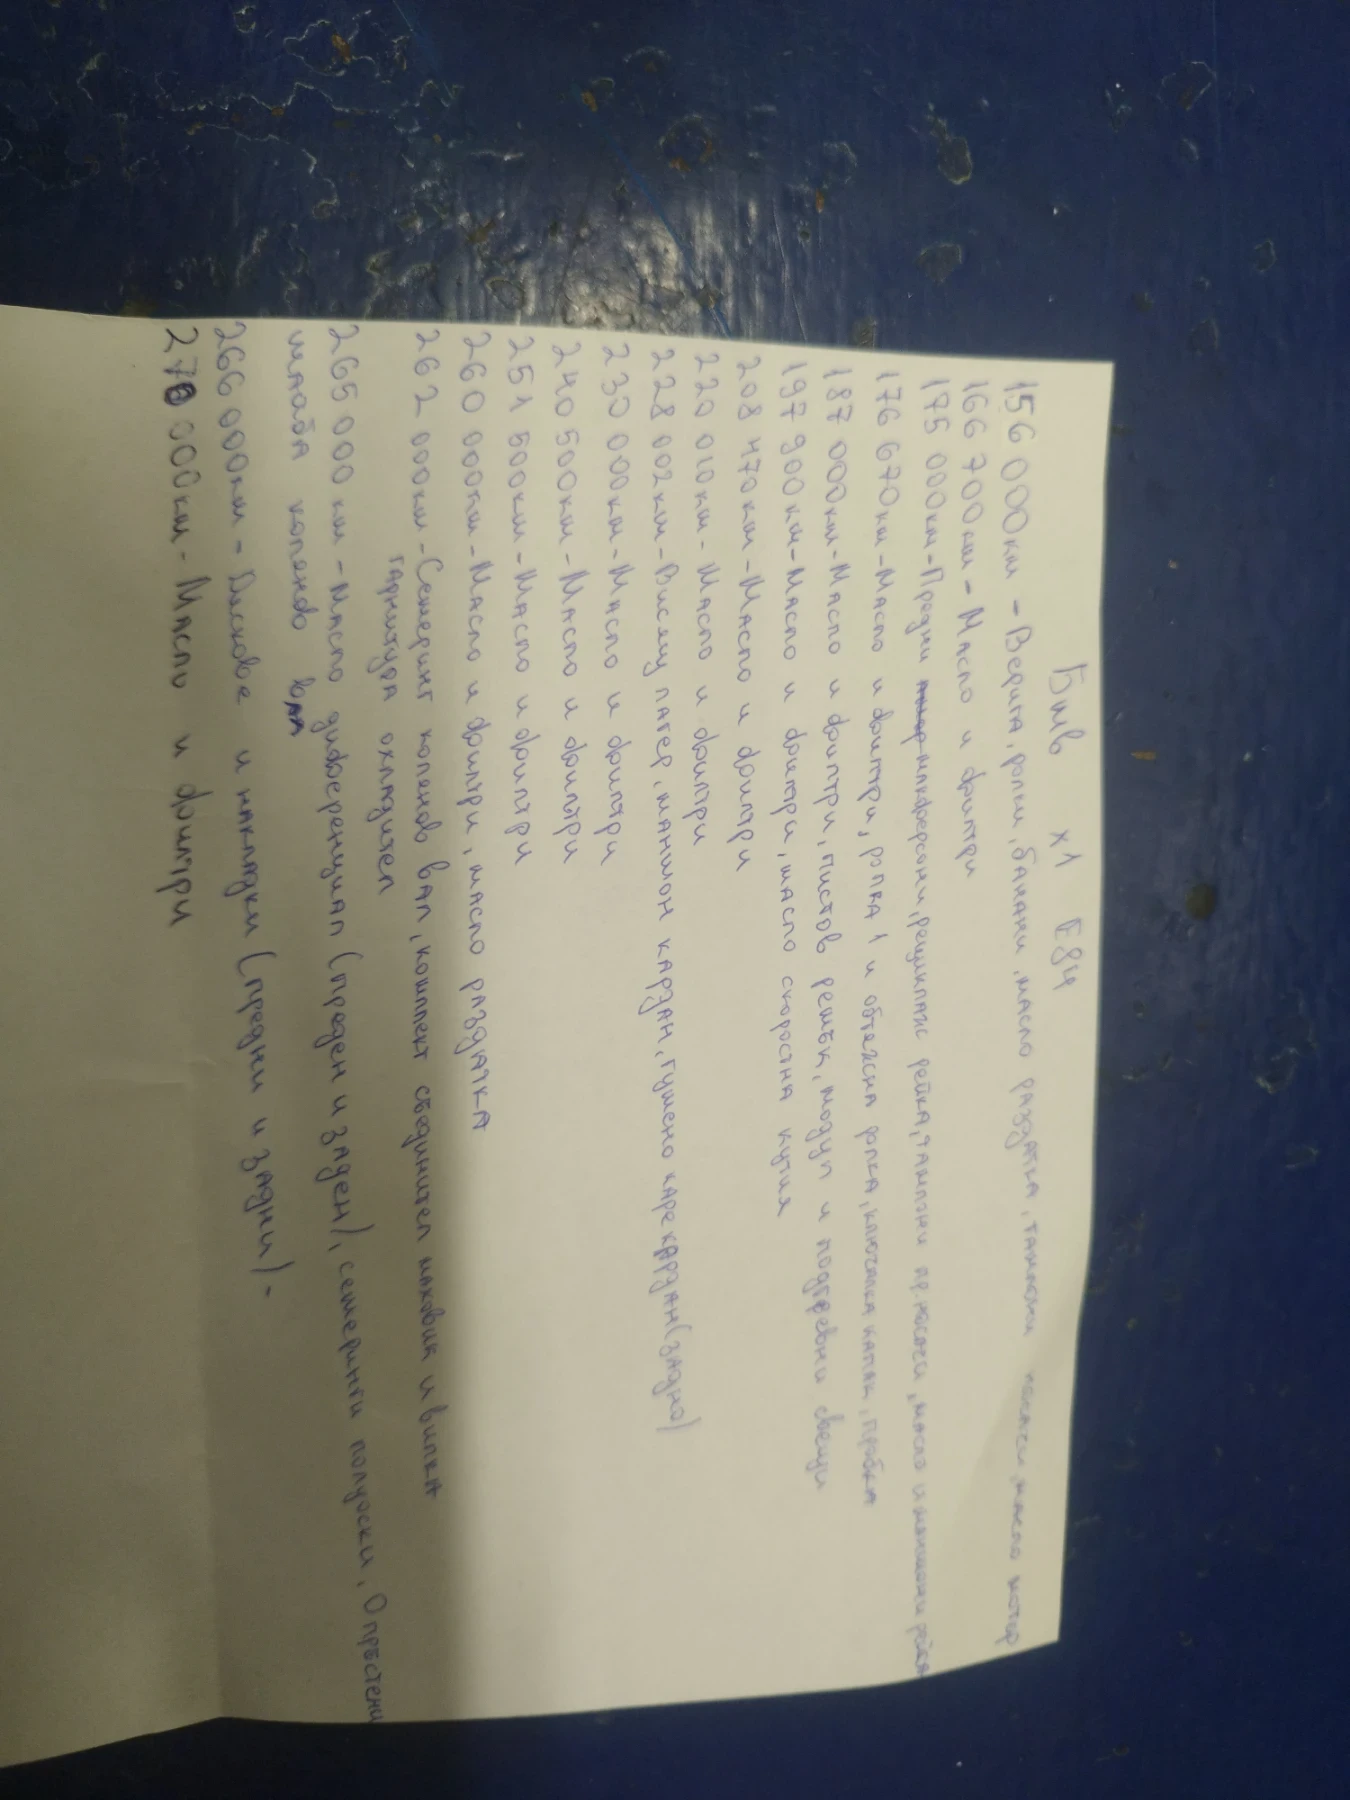 Бмв х1 Е84
156 000км - Верига, ролки, бакани, масло раздатка, тампони носачи, масло мотор
166 700км - Масло и филтри
175 000км - Предни макферсони, рециклаж рейка, тампони пр. носачи, масло и маншони рейка
176 670км - Масло и филтри, ролка 1 и обтяжна ролка, ключалка капак, пробка
187 000км - Масло и филтри, пистов ремък, модул и подгревни свещи
197 900км - Масло и филтри, масло скоростна кутия
208 470км - Масло и филтри
220 010км - Масло и филтри
228 002км - Висящ лагер, маншон кардан, гумено каре кардан (задно)
230 000км - Масло и филтри
240 500км - Масло и филтри
251 500км - Масло и филтри
260 000км - Масло и филтри, масло раздатка
262 000км - Семеринг коленов вал, комплект съединител маховик и вилка
гарнитура охладител
265 000км - Масло диференциал (преден и заден), семеринги полуоски, О пръстени
шайба коленов вал
266 000км - Дискове и накладки (предни и задни) -
270 000км - Масло и филтри